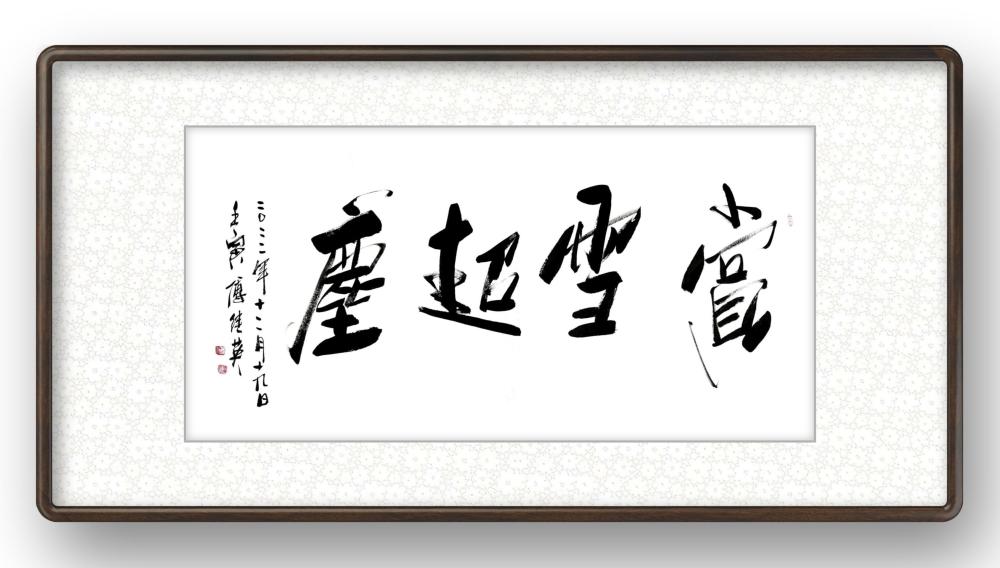 賞雪超塵
二〇二二年十二月十九日
壬寅傅佳英